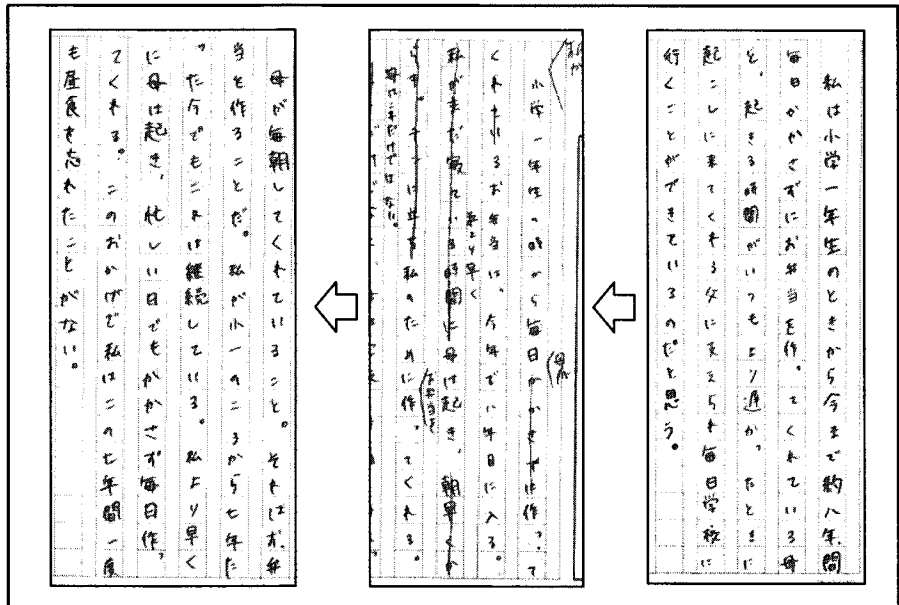 私は小学一年生のときから今まで約八年間
毎日かかさずにお弁当を作ってくれている母
と、起きる時間がいつもより遅かったときに
起こしに来てくれる父に支えられ毎日学校に
行くことができているのだと思う。
私が
小学一年生の時から毎日かかさず作って
母が
くれたれるお弁当は、今年で七年目に入る。
私より早く
私がまだ寝ている時間に母は起き、朝早くか
お弁当を
私のために作ってくれる。
母はこれだけではない。
母が毎朝してくれていること。それはお弁
当を作ることだ。私が小一のころから七年た
った今でもこれは継続している。私より早く
に母は起き、忙しい日でもかかさず毎日作っ
てくれる。このおかげで私はこの七年間一度
も昼食を忘れたことがない。